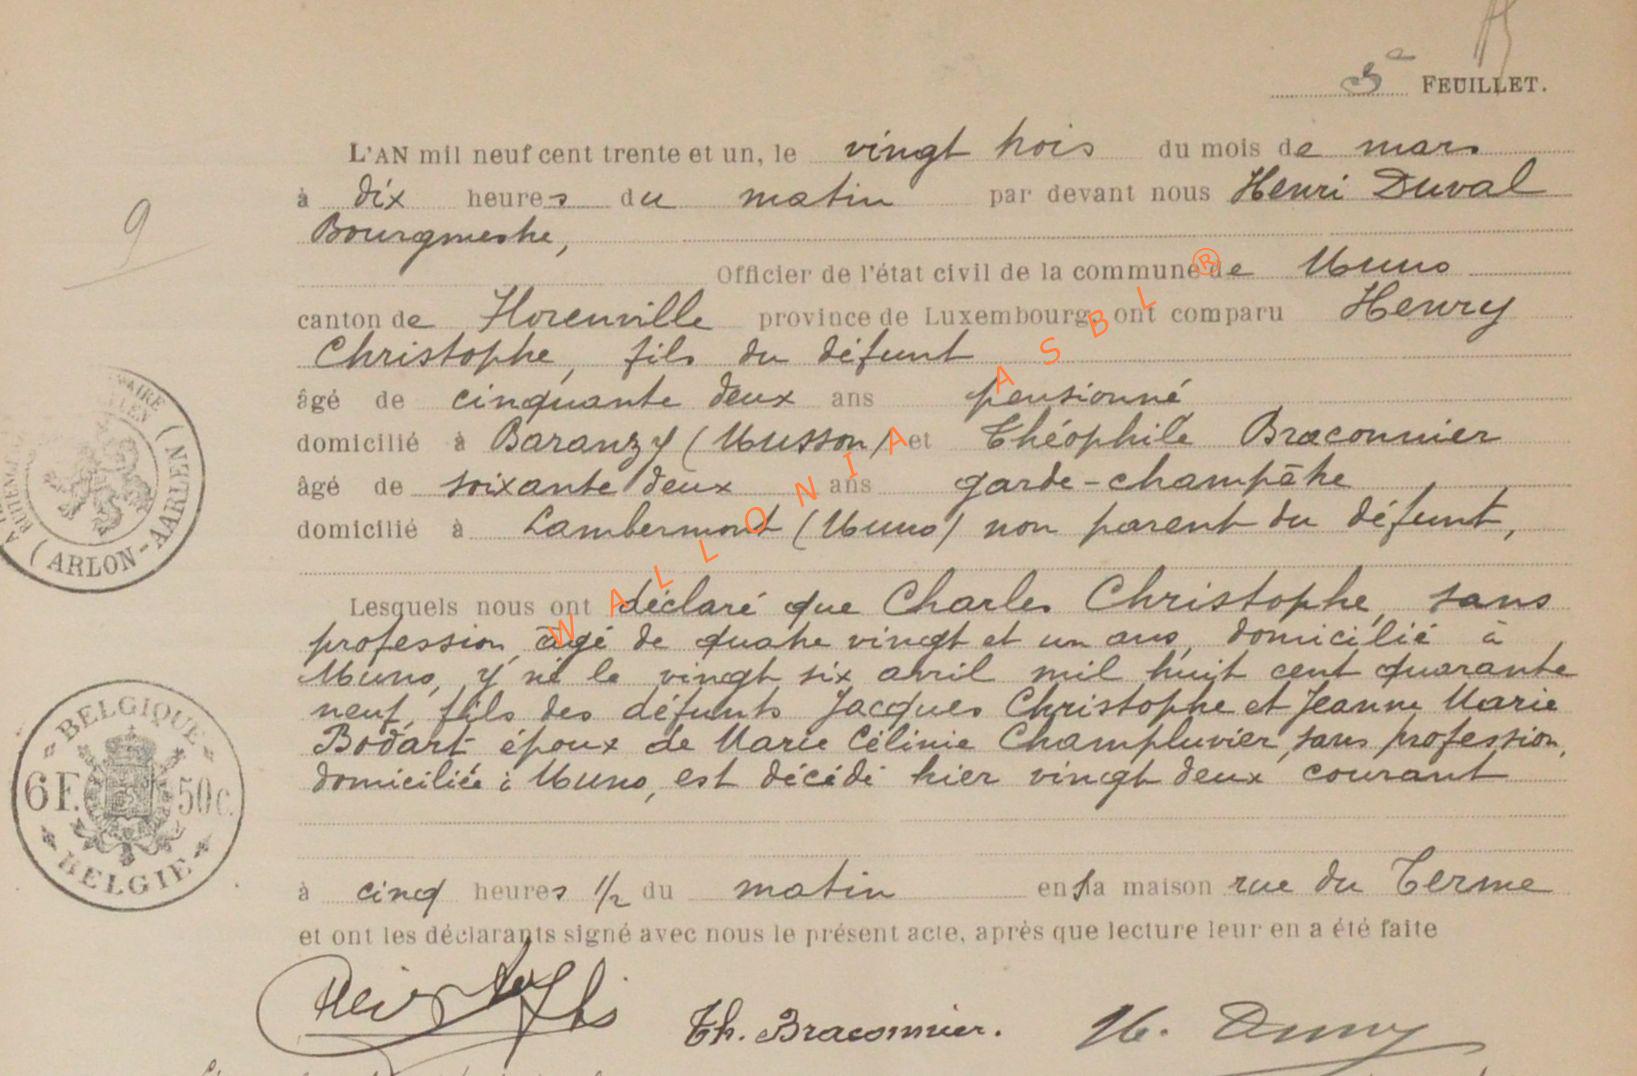 5e FEUILLET.
L'AN mil neuf cent trente et un, le vingt trois du mois de mars
à dix heures du matin par devant nous Henri Duval
Bourgmestre,
9
Officier de l'état civil de la commune de Muno
canton de Florenville province de Luxembourg, ont comparu Henry
Christophe, fils du défunt
âgé de cinquante deux ans pensionné
domicilié à Baranzy (Musson) et Théophile Braconnier
âgé de soixante deux ans garde-champêtre
domicilié à Lambermont (Muno) non parent du défunt,
(ARLON-AARLEN)
Lesquels nous ont déclaré que Charles Christophe, sans
profession, âgé de quatre vingt et un ans, domicilié à
Muno, y né le vingt six avril mil huit cent quarante
neuf, fils des défunts Jacques Christophe et Jeanne Marie
Bodart époux de Marie Célinie Champluvier, sans profession,
domiciliée à Muno, est décédé hier vingt deux courant
BELGIQUE
6F. 50c.
BELGIE
à cinq heures 1/2 du matin en sa maison rue du Terme
et ont les déclarants signé avec nous le présent acte, après que lecture leur en a été faite
Th. Braconnier.
WALLONIA ASBL ®